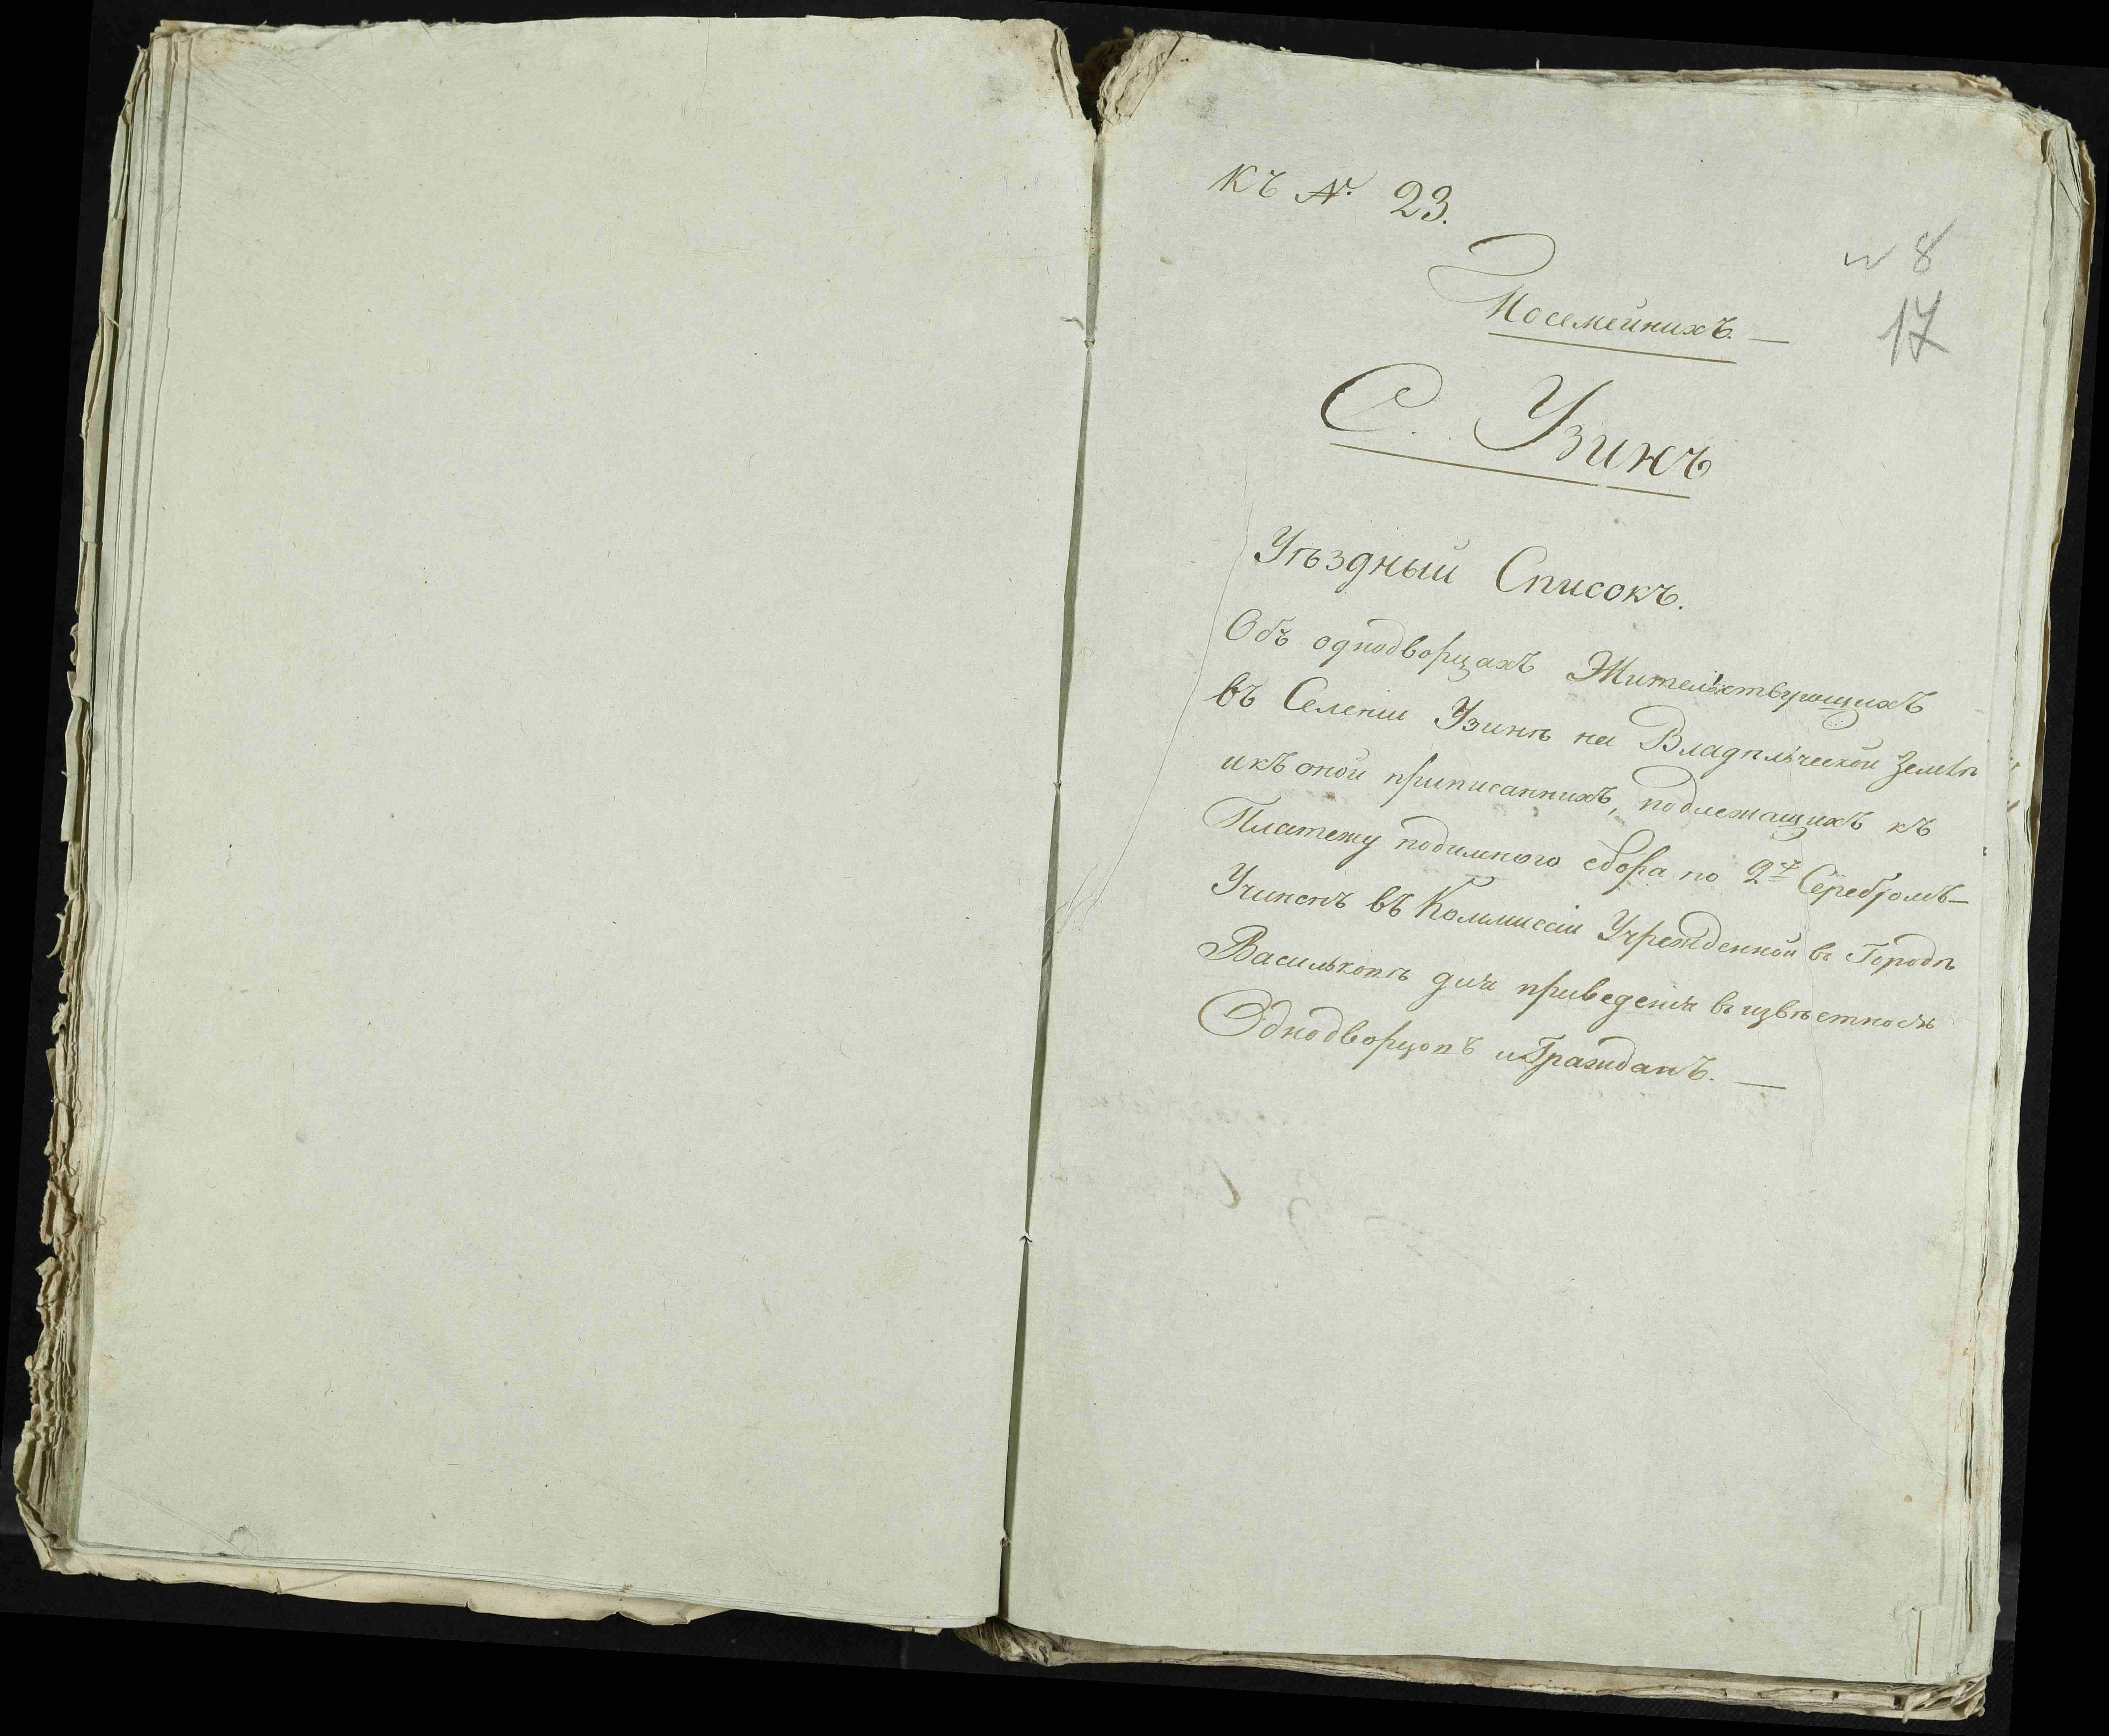 Къ №. 23.
№ 8
17
Посемейнихъ. —
С. Узинъ
Уѣздный Списокъ.
Объ однодворцахъ Жительствующихъ
въ Селеніи Узинѣ на Владѣльческой Землѣ
и къ оной приписаннихъ, подлежащихъ къ
Платежу подимного сбора по 2 Серебромъ —
Учиненъ въ Коммиссіи Учрежденной въ Городѣ
Васильковѣ для приведенія въ извѣстность
Однодворцовъ и Гражданъ. —